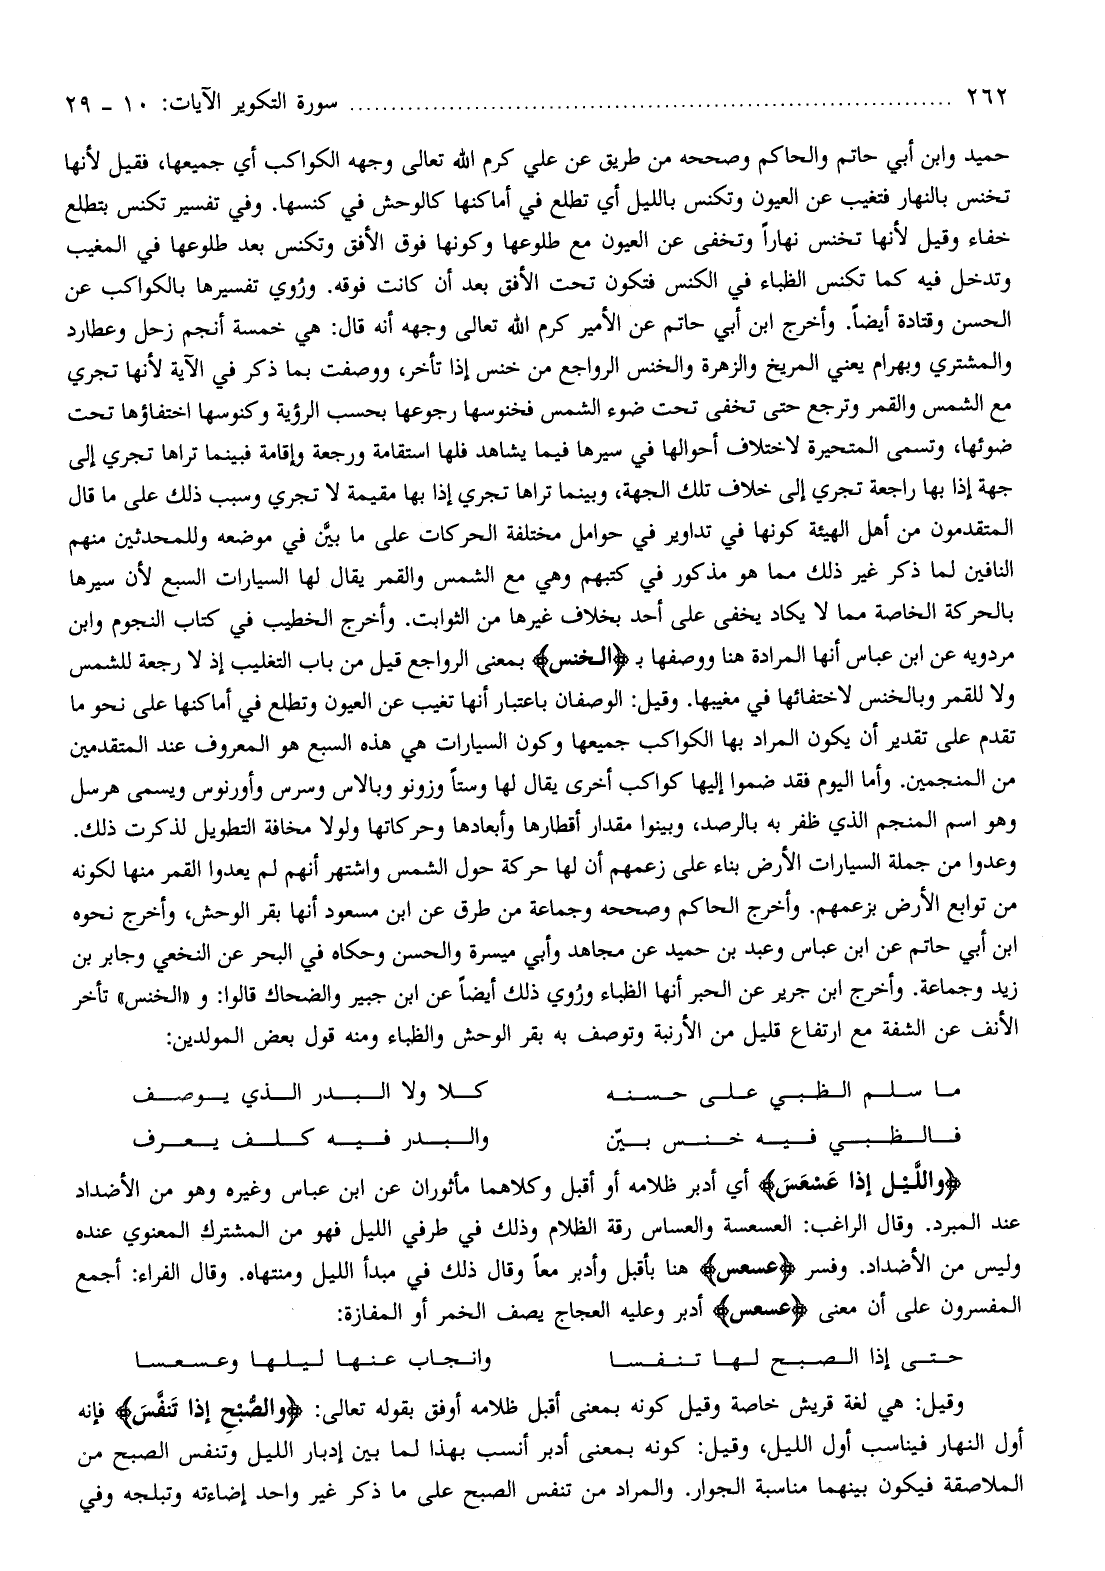 ٢٦٢ ........................................................ سورة التكوير الآيات: ١٠ - ٢٩
حميد وابن أبي حاتم والحاكم وصححه من طريق عن علي كرم الله تعالى وجهه الكواكب أي جميعها، فقيل لأنها
تخنس بالنهار فتغيب عن العيون وتكنس بالليل أي تطلع في أماكنها كالوحش في كنسها. وفي تفسير تكنس بتطلع
خفاء وقيل لأنها تخنس نهاراً وتخفى عن العيون مع طلوعها وكونها فوق الأفق وتكنس بعد طلوعها في المغيب
وتدخل فيه كما تكنس الظباء في الكنس فتكون تحت الأفق بعد أن كانت فوقه. ورُوي تفسيرها بالكواكب عن
الحسن وقتادة أيضاً. وأخرج ابن أبي حاتم عن الأمير كرم الله تعالى وجهه أنه قال: هي خمسة أنجم زحل وعطارد
والمشتري وبهرام يعني المريخ والزهرة والخنس الرواجع من خنس إذا تأخر، ووصفت بما ذكر في الآية لأنها تجري
مع الشمس والقمر وترجع حتى تخفى تحت ضوء الشمس فخنوسها رجوعها بحسب الرؤية وكنوسها اختفاؤها تحت
ضوئها، وتسمى المتحيرة لاختلاف أحوالها في سيرها فيما يشاهد فلها استقامة ورجعة وإقامة فبينما تراها تجري إلى
جهة إذا بها راجعة تجري إلى خلاف تلك الجهة، وبينما تراها تجري إذا بها مقيمة لا تجري وسبب ذلك على ما قال
المتقدمون من أهل الهيئة كونها في تداوير في حوامل مختلفة الحركات على ما بيَّن في موضعه وللمحدثين منهم
النافين لما ذكر غير ذلك مما هو مذكور في كتبهم وهي مع الشمس والقمر يقال لها السيارات السبع لأن سيرها
بالحركة الخاصة مما لا يكاد يخفى على أحد بخلاف غيرها من الثوابت. وأخرج الخطيب في كتاب النجوم وابن
مردويه عن ابن عباس أنها المرادة هنا ووصفها بـ ﴿الخنس﴾ بمعنى الرواجع قيل من باب التغليب إذ لا رجعة للشمس
ولا للقمر وبالخنس لاختفائها في مغيبها. وقيل: الوصفان باعتبار أنها تغيب عن العيون وتطلع في أماكنها على نحو ما
تقدم على تقدير أن يكون المراد بها الكواكب جميعها وكون السيارات هي هذه السبع هو المعروف عند المتقدمين
من المنجمين. وأما اليوم فقد ضموا إليها كواكب أخرى يقال لها وستاً وزونو وبالاس وسرس وأورنوس ويسمى هرسل
وهو اسم المنجم الذي ظفر به بالرصد، وبينوا مقدار أقطارها وأبعادها وحركاتها ولولا مخافة التطويل لذكرت ذلك.
وعدوا من جملة السيارات الأرض بناء على زعمهم أن لها حركة حول الشمس واشتهر أنهم لم يعدوا القمر منها لكونه
من توابع الأرض بزعمهم. وأخرج الحاكم وصححه وجماعة من طرق عن ابن مسعود أنها بقر الوحش، وأخرج نحوه
ابن أبي حاتم عن ابن عباس وعبد بن حميد عن مجاهد وأبي ميسرة والحسن وحكاه في البحر عن النخعي وجابر بن
زيد وجماعة. وأخرج ابن جرير عن الحبر أنها الظباء ورُوي ذلك أيضاً عن ابن جبير والضحاك قالوا: و «الخنس» تأخر
الأنف عن الشفة مع ارتفاع قليل من الأرنبة وتوصف به بقر الوحش والظباء ومنه قول بعض المولدين:
ما سلم الظبي على حسنه كلا ولا البدر الذي يوصف
فالظبي فيه خنس بيّن والبدر فيه كلف يعرف
﴿واللَّيْل إذا عَسْعَسَ﴾ أي أدبر ظلامه أو أقبل وكلاهما مأثوران عن ابن عباس وغيره وهو من الأضداد
عند المبرد. وقال الراغب: العسعسة والعساس رقة الظلام وذلك في طرفي الليل فهو من المشترك المعنوي عنده
وليس من الأضداد. وفسر ﴿عسعس﴾ هنا بأقبل وأدبر معاً وقال ذلك في مبدأ الليل ومنتهاه. وقال الفراء: أجمع
المفسرون على أن معنى ﴿عسعس﴾ أدبر وعليه العجاج يصف الخمر أو المفازة:
حتى إذا الصبح لها تنفسا وانجاب عنها ليلها وعسعسا
وقيل: هي لغة قريش خاصة وقيل كونه بمعنى أقبل ظلامه أوفق بقوله تعالى: ﴿والصُّبْحِ إذا تَنفَّسَ﴾ فإنه
أول النهار فيناسب أول الليل، وقيل: كونه بمعنى أدبر أنسب بهذا لما بين إدبار الليل وتنفس الصبح من
الملاصقة فيكون بينهما مناسبة الجوار. والمراد من تنفس الصبح على ما ذكر غير واحد إضاءته وتبلجه وفي